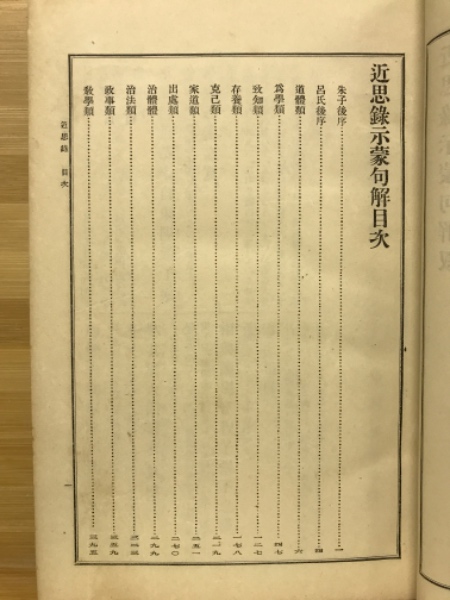 近思錄示蒙句解目次
朱子後序……一
呂氏後序……四
道體類……六
爲學類……四七
致知類……一二七
存養類……一七八
克己類……二一九
家道類……二五一
出處類……二七〇
治體類……二九九
治法類……三二三
政事類……三五九
敎學類……三九五
近思錄 目次
一